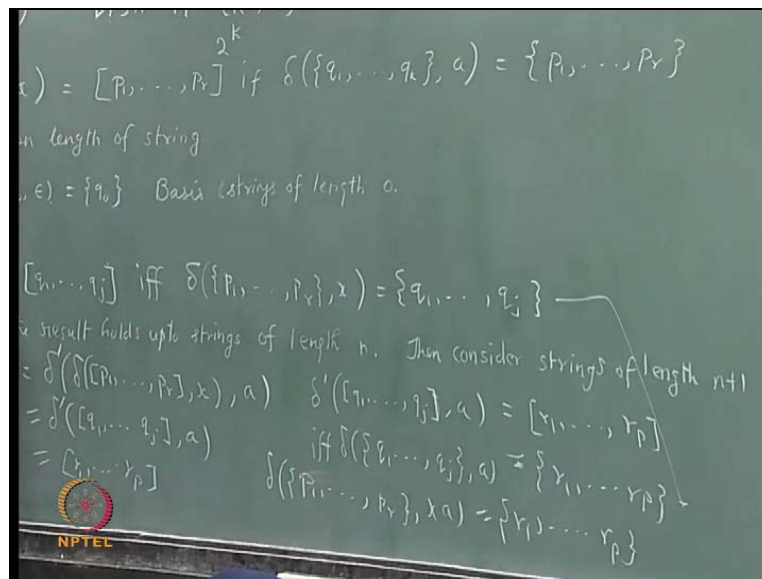 2^k
) = [p₁, ..., pᵣ] if δ({q₁, ..., qₖ}, a) = {p₁, ..., pᵣ}
n length of string
, ϵ) = {q₀} Basis (strings of length 0.
[q₁, ..., qⱼ] iff δ({p₁, ..., pᵣ}, x) = {q₁, ..., qⱼ}
result holds upto strings of length n. Then consider strings of length n+1
= δ'(δ([p₁, ..., pᵣ], x), a) δ'([q₁, ..., qⱼ], a) = [r₁, ..., rₚ]
= δ'([q₁, ... qⱼ], a) iff δ({q₁, ... qⱼ}, a) = {r₁, ... rₚ}
= [r₁, ... rₚ] δ({p₁, ..., pᵣ}, xa) = {r₁, ... rₚ}
NPTEL